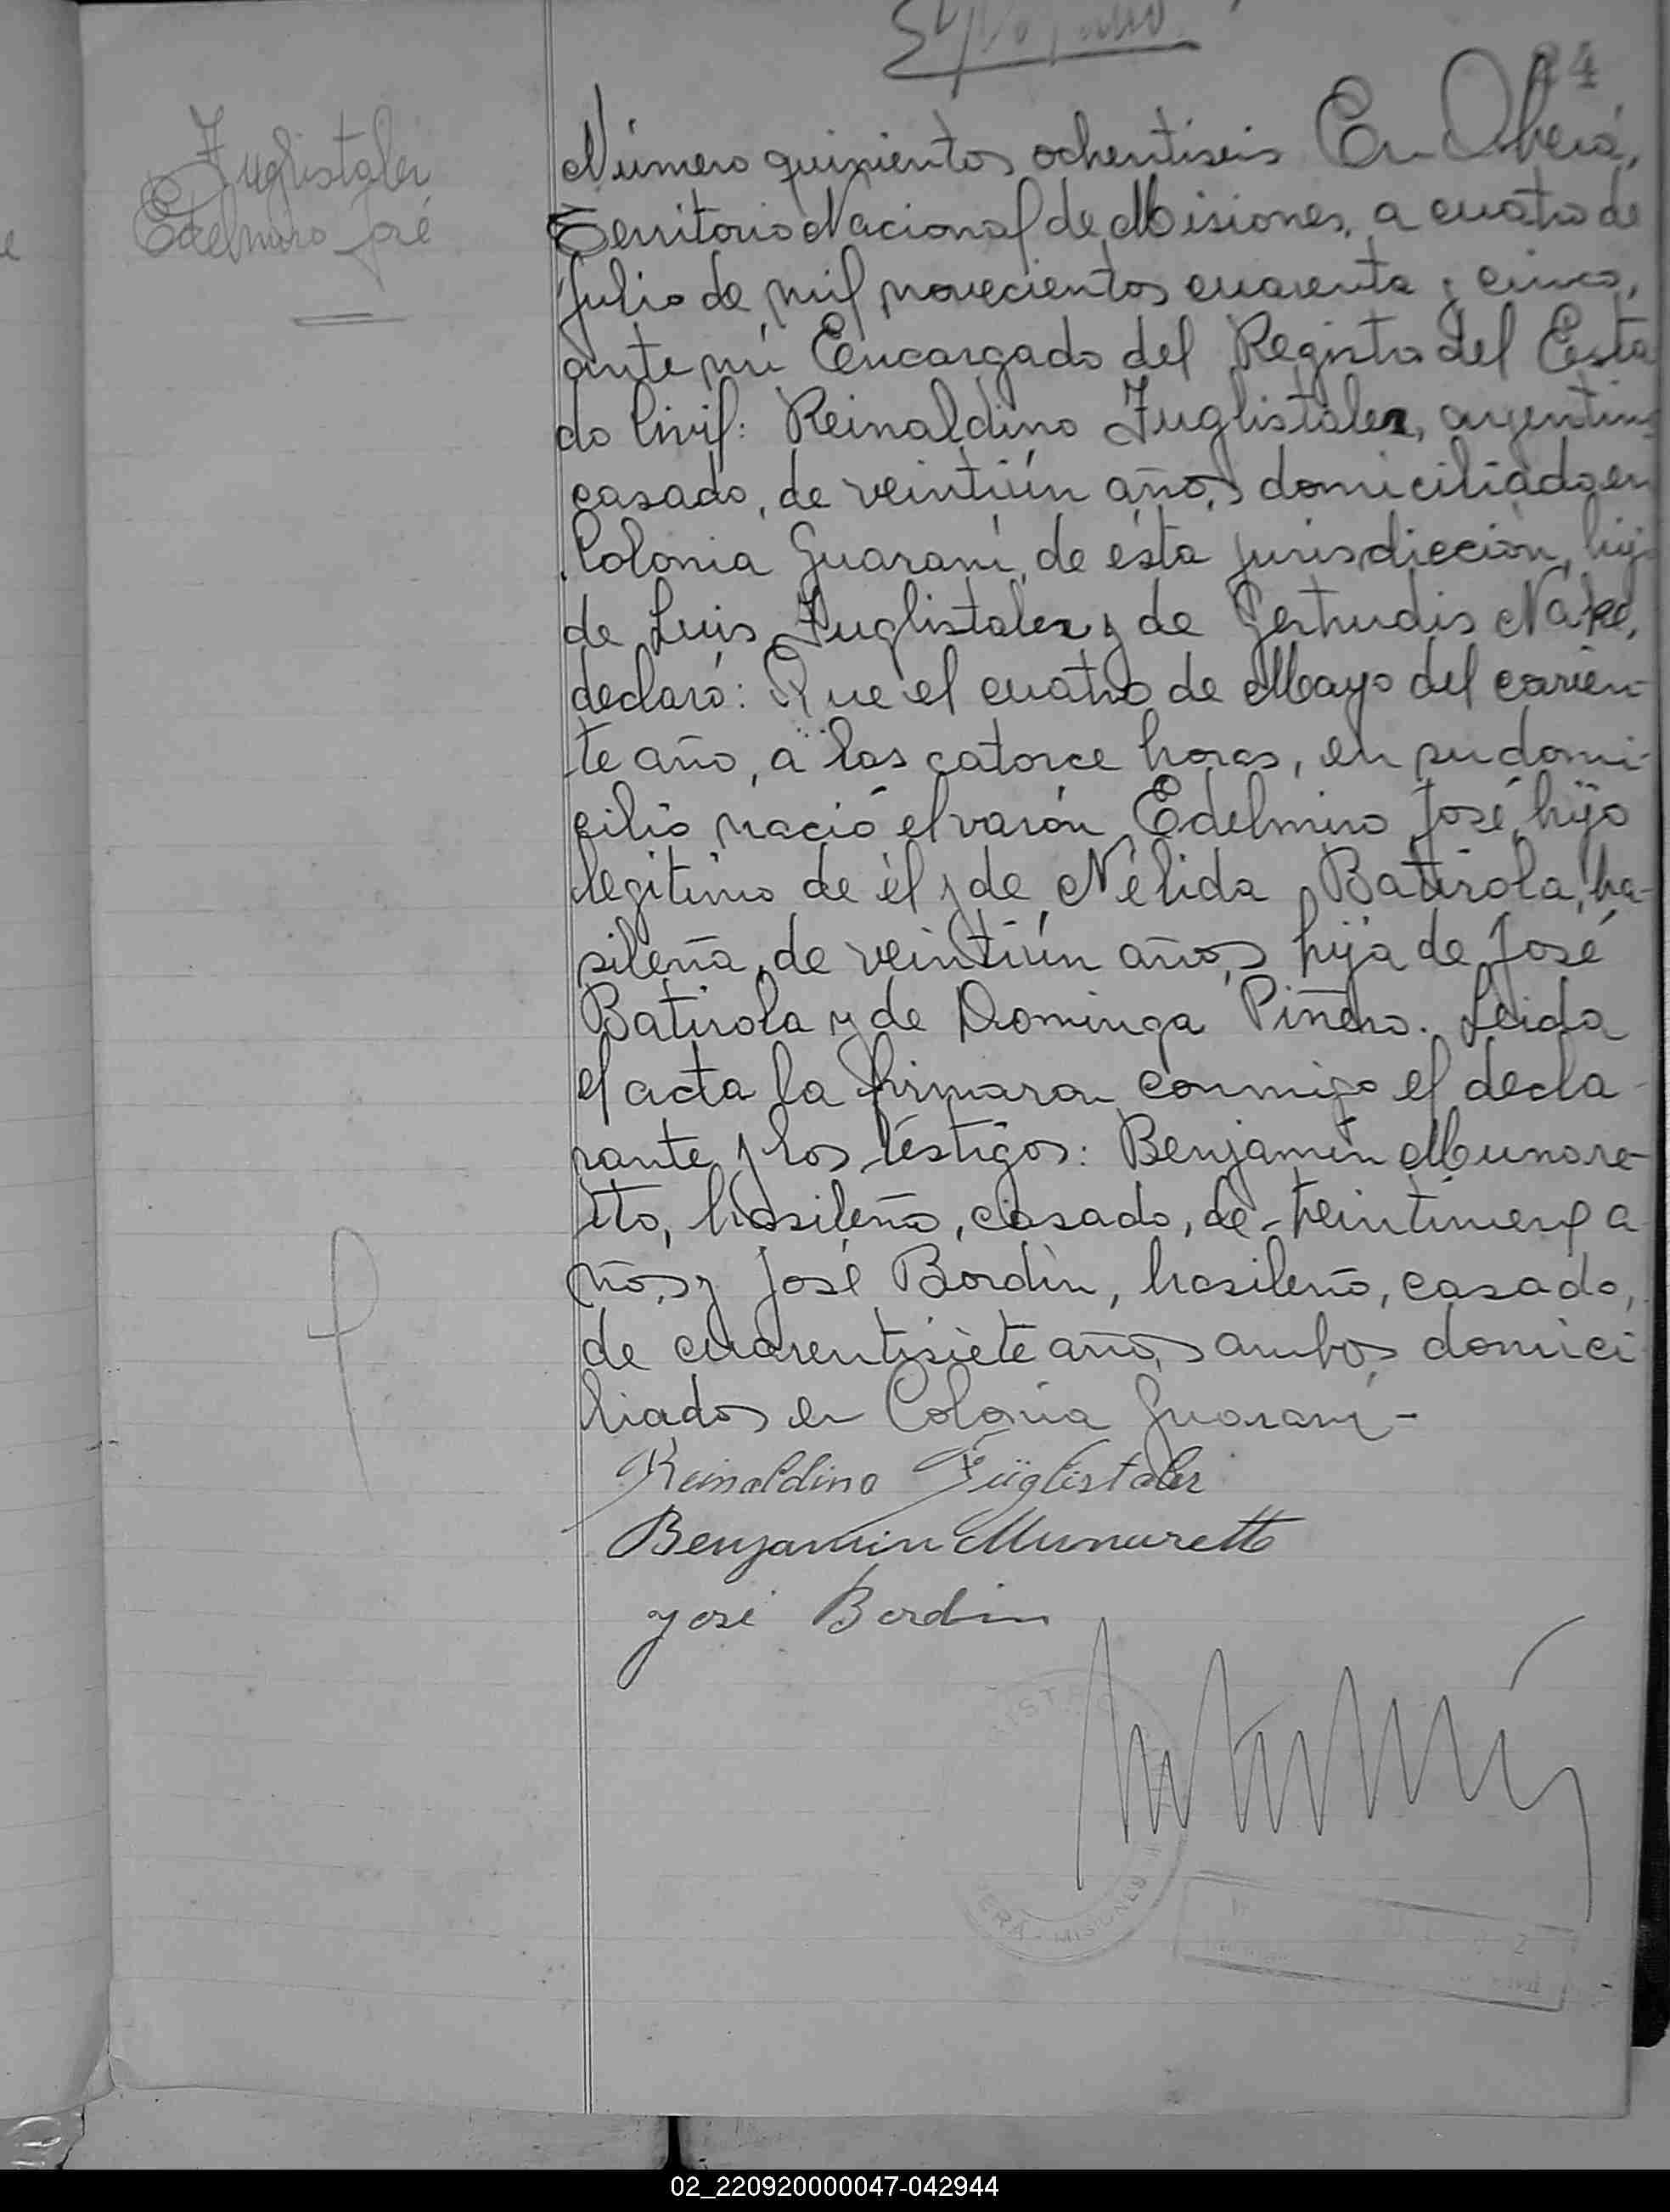 84
Fuglistaler
Edelmiro José
Número quinientos ochentiseis En Oberá,
Territorio Nacional de Misiones, a cuatro de
Julio de mil novecientos cuarenta y cinco,
ante mi Encargado del Registro del Esta
do Civil: Reinaldino Fuglistaler, argentino
casado, de veintiún años, domiciliado en
Colonia Guaraní, de ésta jurisdicción, hijo
de Luis Fuglistaler y de Gertrudis Nake,
declaró: Que el cuatro de Mayo del corrien-
te año, a las catorce horas, en su domi-
cilio nació el varón Edelmiro José, hijo
legitimo de él y de Nélida Batirola, bra-
sileña, de veintiún años, hija de José
Batirola y de Dominga Piñero. Leida
el acta la firmaron conmigo el decla-
rante y los testigos: Benjamín Munare-
tto, brasileño, casado, de treintinueve a
ños, y José Bordin, brasileño, casado,
de cuarentisiete años, ambos domici
liados en Colonia Guaraní -
Reinaldino Füglistaler
Benjamin Munaretto
José Bordin
MISIONES
02_220920000047-042944